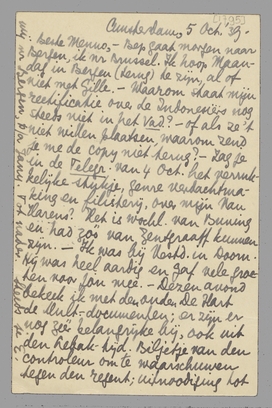 [1935]
Amsterdam, 5 Oct. '35.
Beste Menno, – Bep gaat morgen naar
Bergen, ik nr Brussel. Ik hoop Maan-
dag in Bergen (terug) te zijn, al of
niet met Gille. – Waarom staat mijn
rectificatie over de Indonesiërs nog
steeds niet in het Vad? – of als ze 't
niet willen plaatsen, waarom zend
je me de copy niet terug? – Zag je
in de Telegr. van 4 Oct. het verruk-
kelijke stukje, genre verdachtma-
king en filisterij, over mijn Mul
Havens? Het is wschl. van Buning
en had zóó van Zentgraaff kunnen
zijn. – Ik was bij Resid. in Doorn.
Hij was heel aardig en gaf vele groe-
ten voor jou mee. – Dezen avond
bekeek ik met den ouden De Hart
de Mult-documenten; er zijn er
nog zéér belangrijke bij, ook uit
den Lebak-tijd. Biljetje van den
controleur om te waarschuwen
tegen den regent; uitnoodiging tot